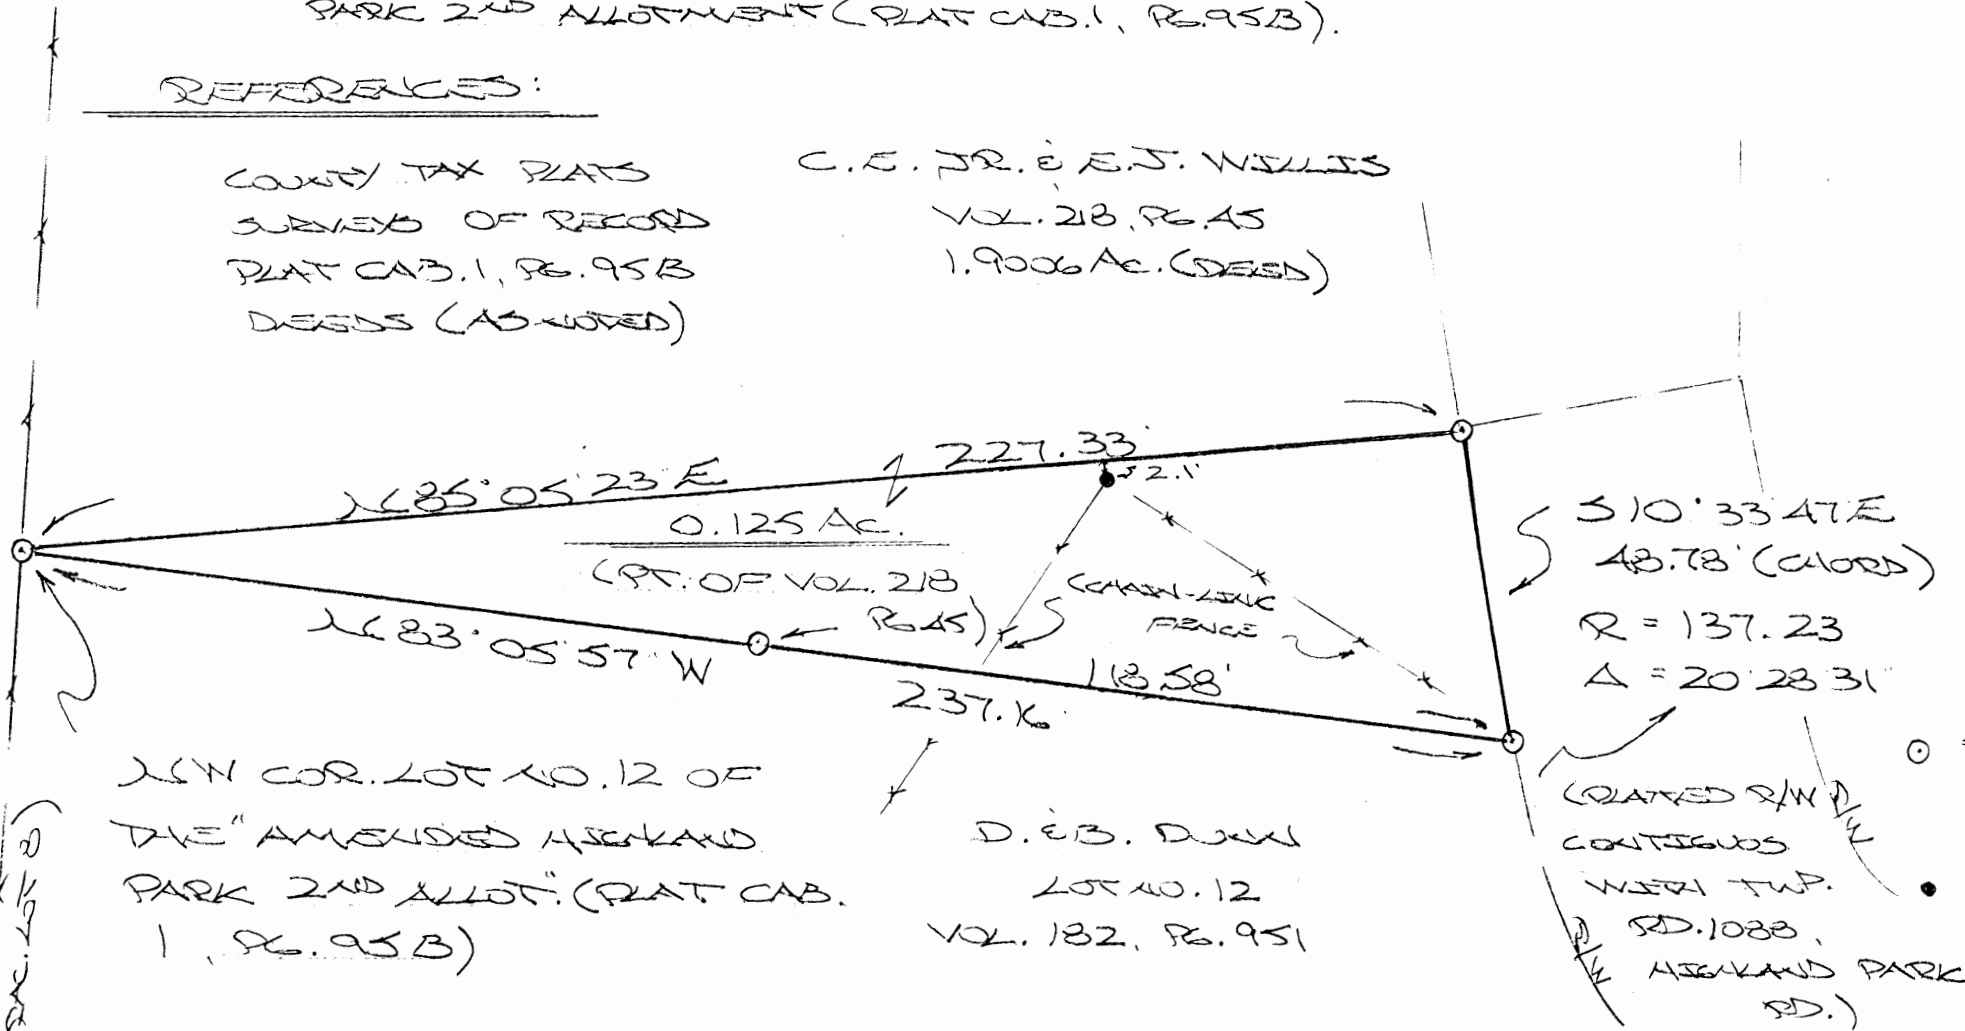 PARK 2ND ALLOTMENT (PLAT CAB.1, PG.95B).
REFERENCES:
COUNTY TAX PLATS
SURVEYS OF RECORD
PLAT CAB.1, PG.95B
DEEDS (AS NOTED)
C.E. JR. & E.J. WILLIS
VOL. 218, PG.45
1.9006 AC. (DEED)
N 85°05'23" E
227.33'
2.1'
0.125 AC.
(PT. OF VOL. 218
PG.45)
(CHAIN-LINK
FENCE
N 83°05'57" W
118.58'
237.16'
S 10°33'47" E
48.78' (CHORD)
R = 137.23
Δ = 20°28'31"
NW COR. LOT NO.12 OF
THE "AMENDED HIGHLAND
PARK 2ND ALLOT." (PLAT CAB.
1, PG.95B)
D. & B. DUNN
LOT NO.12
VOL. 182, PG. 951
(PLATTED R/W
CONTIGUOS
WITH TWP.
RD.1088,
HIGHLAND PARK
RD.)
R/W
R/W